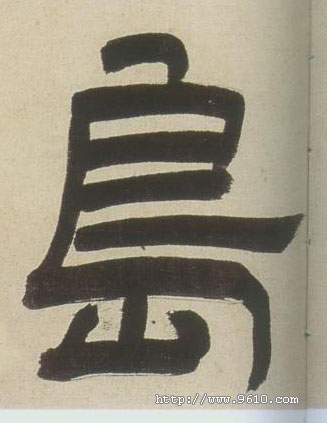 島
http://www.9610.com